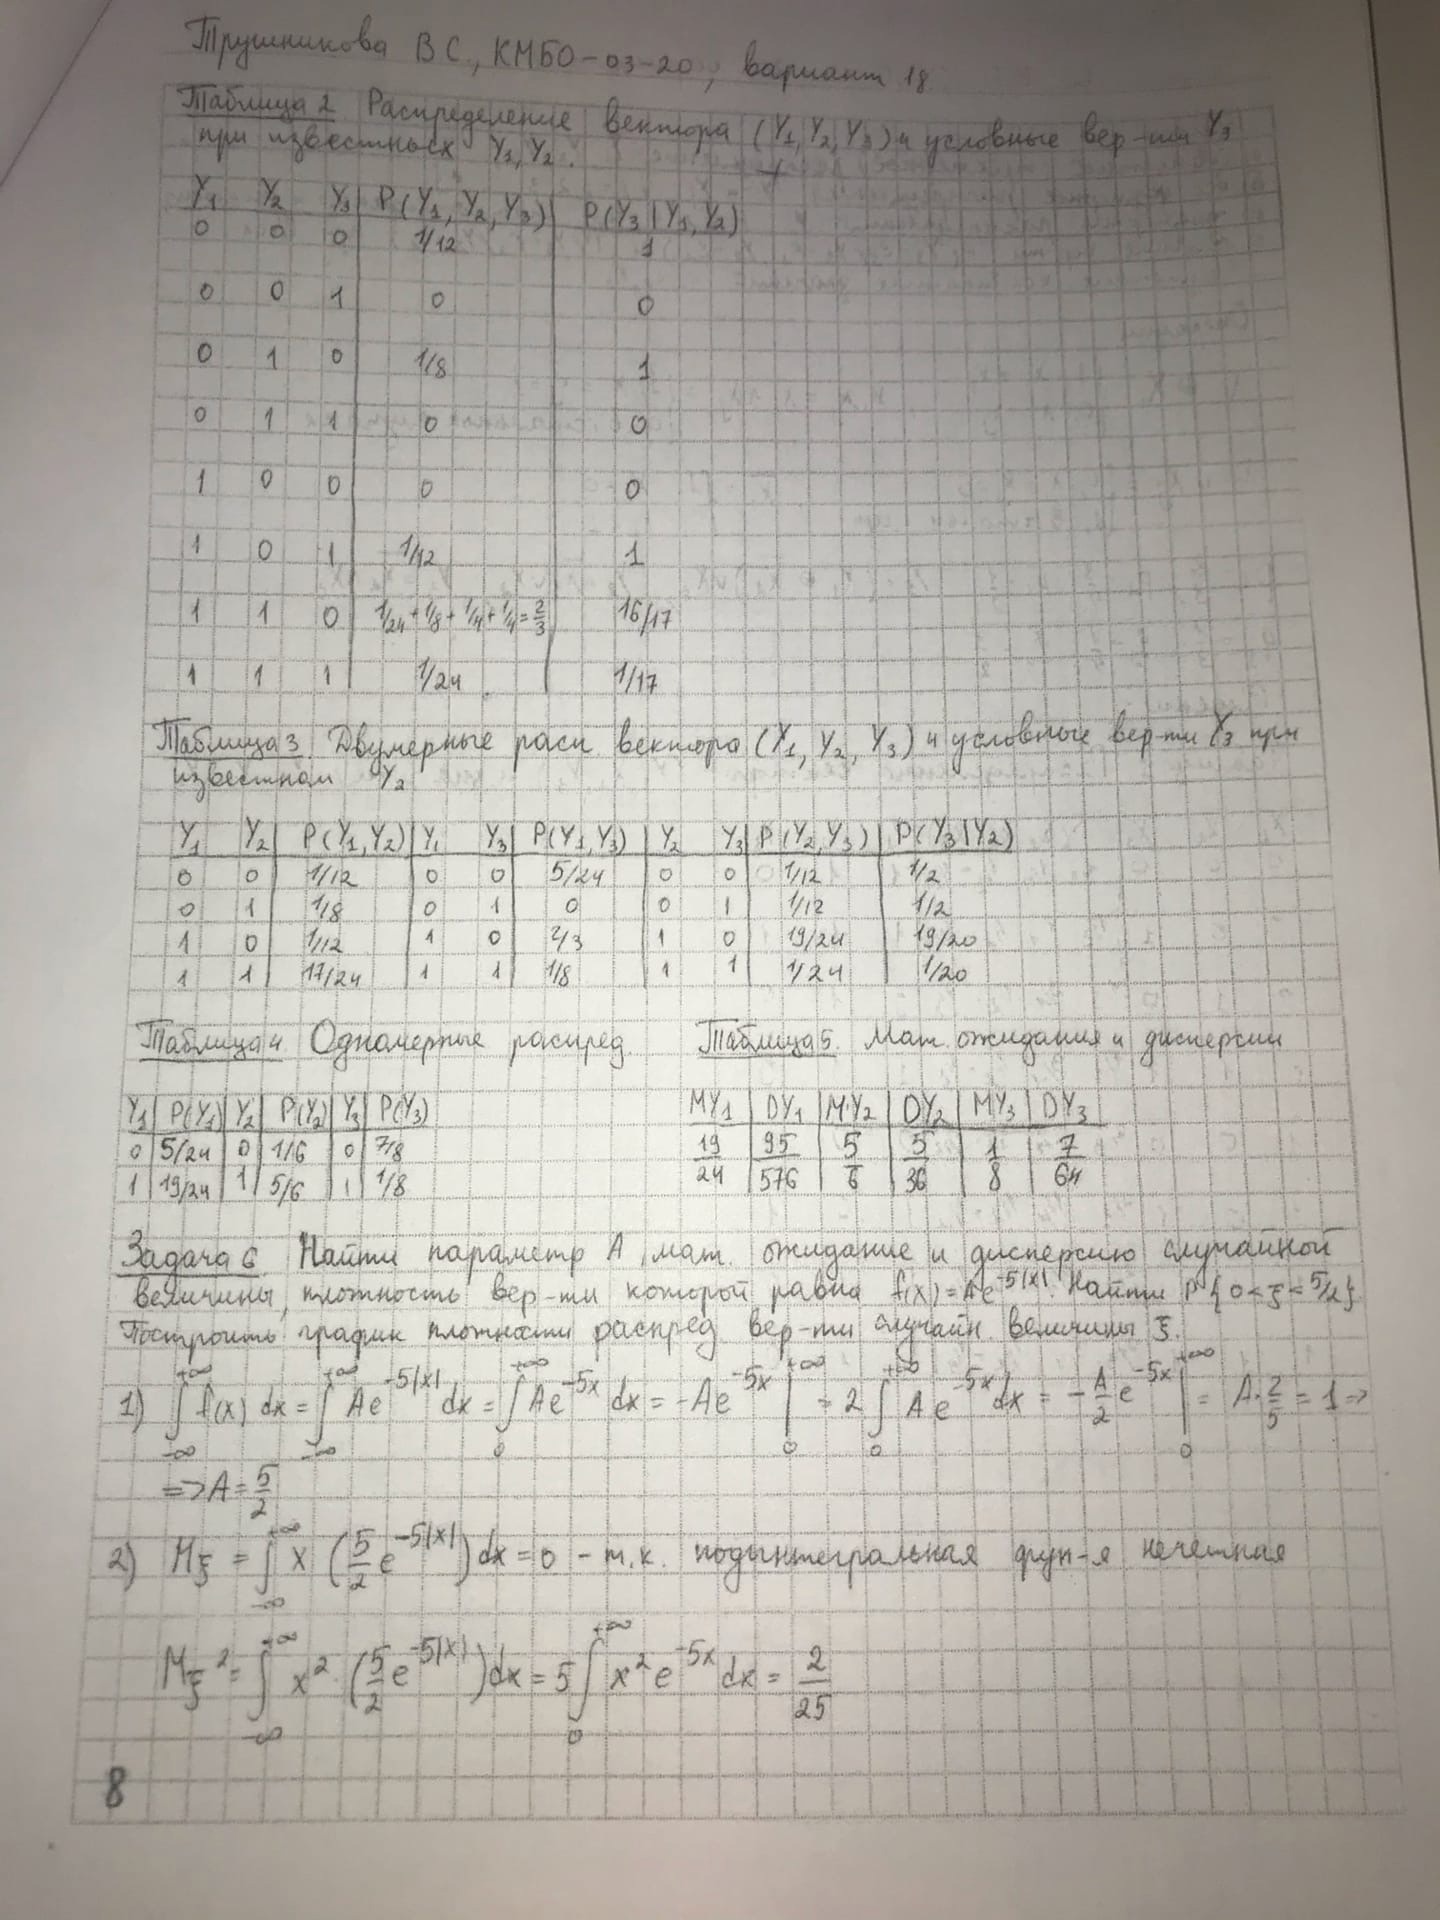 Трушникова В С., КМБО-03-20, вариант 18
Таблица 2 Распределение вектора (Y₁, Y₂, Y₃) и условные вер-ти Y₃
при известных Y₁, Y₂.
Y₁ Y₂ Y₃ P(Y₁, Y₂, Y₃) P(Y₃|Y₁, Y₂)
0 0 0 1/12 1
0 0 1 0 0
0 1 0 1/8 1
0 1 1 0 0
1 0 0 0 0
1 0 1 1/12 1
1 1 0 1/24 + 1/8 + 1/4 + 1/4 = 2/3 16/17
1 1 1 1/24 1/17
Таблица 3. Двумерные расп. вектора (Y₁, Y₂, Y₃) и условные вер-ти Y₃ при
известном Y₂
Y₁ Y₂ P(Y₁, Y₂) Y₁ Y₃ P(Y₁, Y₃) Y₂ Y₃ P(Y₂, Y₃) P(Y₃|Y₂)
0 0 1/12 0 0 5/24 0 0 1/12 1/2
0 1 1/8 0 1 0 0 1 1/12 1/2
1 0 1/12 1 0 2/3 1 0 19/24 19/20
1 1 17/24 1 1 1/8 1 1 1/24 1/20
Таблица 4. Одномерные распред.
Y₁ P(Y₁) Y₂ P(Y₂) Y₃ P(Y₃)
0 5/24 0 1/6 0 7/8
1 19/24 1 5/6 1 1/8
Таблица 5. Мат. ожидания и дисперсии
MY₁ DY₁ MY₂ DY₂ MY₃ DY₃
19/24 95/576 5/6 5/36 1/8 7/64
Задача 6. Найти параметр A, мат. ожидание и дисперсию случайной
величины, плотность вер-ти которой равна f(x) = Ae^{-5|x|}. Найти P{0 < ξ < 5/2}.
Построить график плотности распред вер-ти случайн. величины ξ.
1) ∫_{-∞}^{+∞} f(x) dx = ∫_{-∞}^{+∞} Ae^{-5|x|} dx = ∫_{0}^{+∞} Ae^{-5x} dx = -Ae^{-5x} |_{0}^{+∞} = 2 ∫_{0}^{+∞} Ae^{-5x} dx = -A/2 e^{-5x} |_{0}^{+∞} = A·2/5 = 1 =>
=> A = 5/2
2) Mξ = ∫_{-∞}^{+∞} x (5/2 e^{-5|x|}) dx = 0 - т.к. подынтегральная фун-я нечетная
Mξ² = ∫_{-∞}^{+∞} x² · (5/2 e^{-5|x|}) dx = 5 ∫_{0}^{+∞} x² e^{-5x} dx = 2/25
8